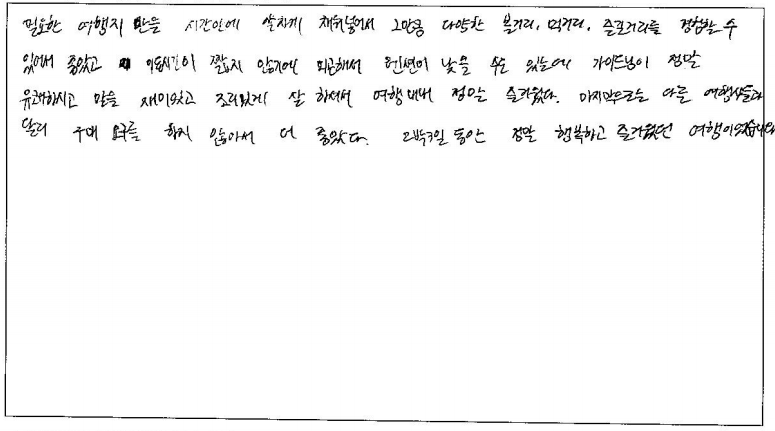 필요한 여행지 만을 시간안에 알차게 채워넣어서 그만큼 다양한 볼거리, 먹거리, 즐길거리를 경험할 수
있어서 좋았고 이동시간이 짧지 않기에 피곤해서 텐션이 낮을 수도 있는데 가이드님이 정말
유쾌하시고 말을 재미있고 조리있게 잘 하셔서 여행 내내 정말 즐거웠다. 마지막으로는 다른 여행사들과
달리 구매 요구를 하지 않아서 더 좋았다. 2박3일 동안 정말 행복하고 즐거웠던 여행이었습니다